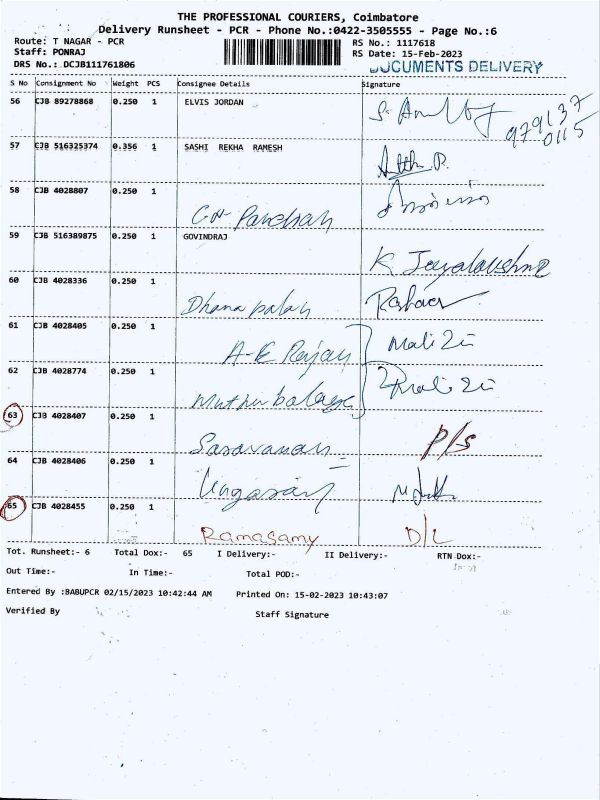 THE PROFESSIONAL COURIERS, Coimbatore
Delivery Runsheet - PCR - Phone No.:0422-3505555 - Page No.:6
Route: T NAGAR - PCR RS No.: 1117618
Staff: PONRAJ RS Date: 15-Feb-2023
DRS No.: DCJB111761806 DOCUMENTS DELIVERY
S No Consignment No Weight PCS Consignee Details Signature
56 CJB 89278868 0.250 1 ELVIS JORDAN
979137
0115
57 CJB 516325374 0.356 1 SASHI REKHA RAMESH
58 CJB 4028807 0.250 1
59 CJB 516389875 0.250 1 GOVINDRAJ
K Jayalakshmi
60 CJB 4028336 0.250 1
Dhanapalan
61 CJB 4028405 0.250 1
A-E Rajan Mali
62 CJB 4028774 0.250 1
Muthubalage Mali
63 CJB 4028407 0.250 1
Saravanan P/S
64 CJB 4028406 0.250 1
65 CJB 4028455 0.250 1
Ramasamy D/L
Tot. Runsheet:- 6 Total Dox:- 65 I Delivery:- II Delivery:- RTN Dox:-
Out Time:- In Time:- Total POD:-
Entered By :BABUPCR 02/15/2023 10:42:44 AM Printed On: 15-02-2023 10:43:07
Verified By Staff Signature